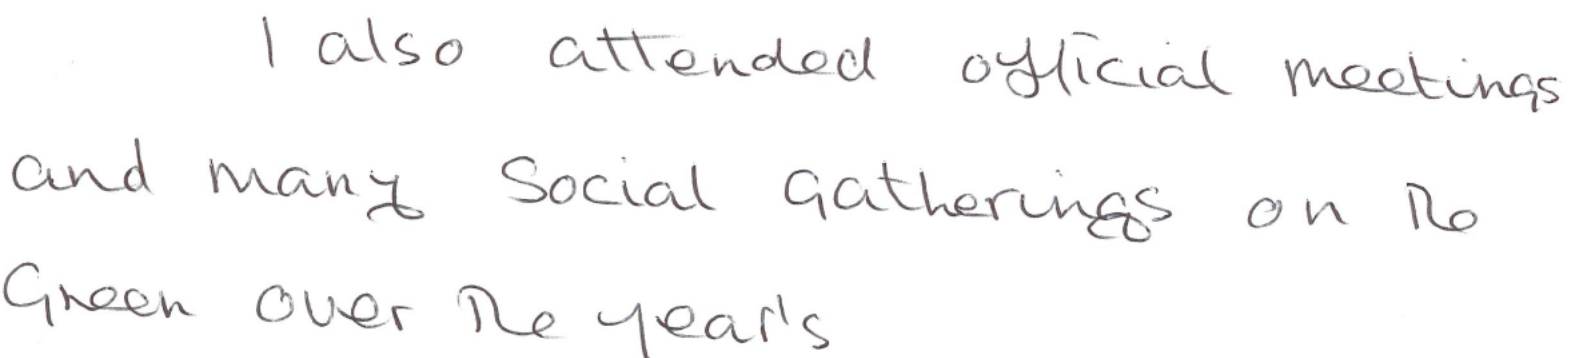 I also attended official meetings
and many Social Gatherings on the
Green over the year's